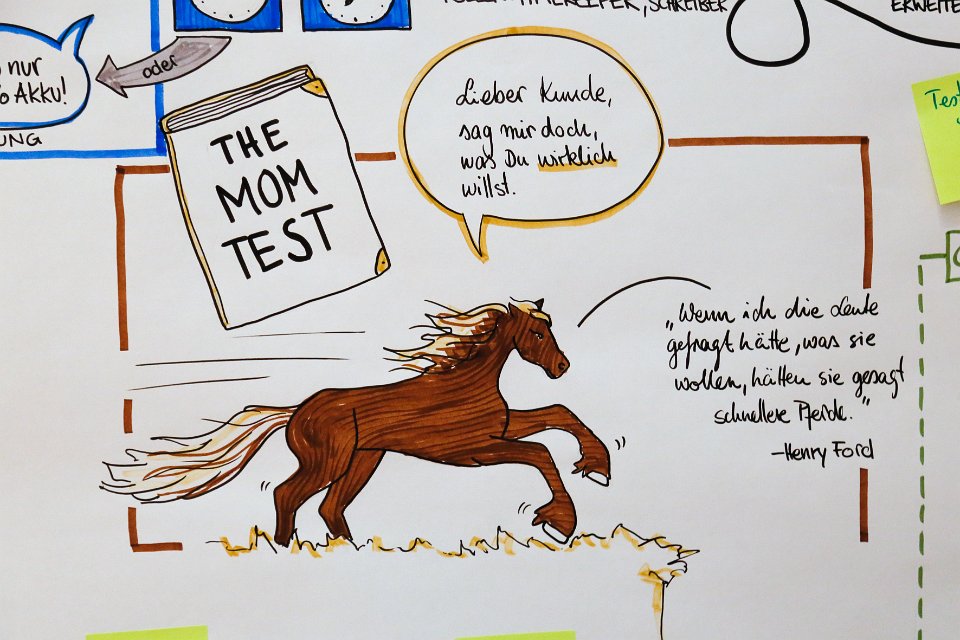 TIMEKEEPER, SCHREIBER
ERWEITE
nur
Akku!
UNG
oder
THE
MOM
TEST
Lieber Kunde,
sag mir doch,
was Du wirklich
willst.
Test
"Wenn ich die Leute
gefragt hätte, was sie
wollen, hätten sie gesagt
schnellere Pferde."
-Henry Ford